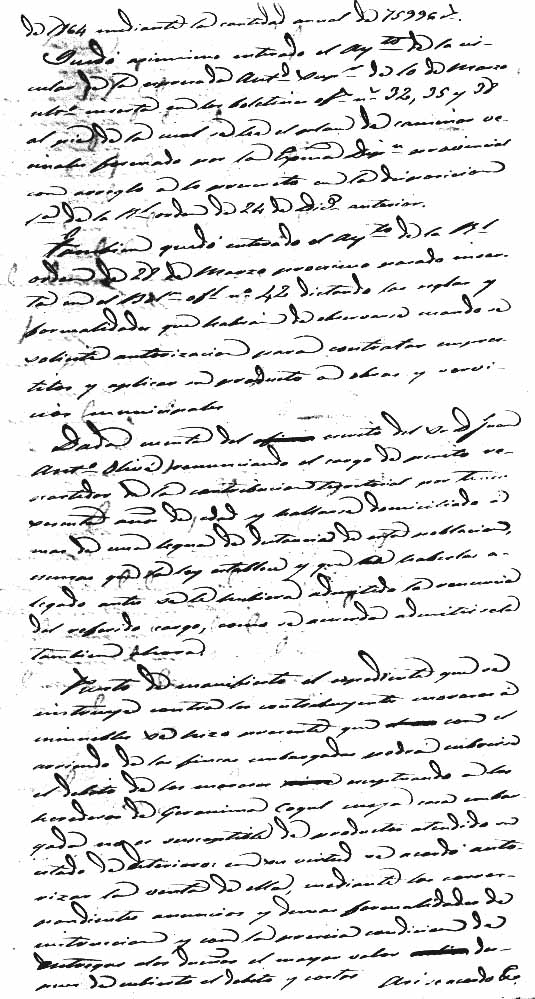 de 1864 mediante la cantidad anual de 75996 r.
Quedó asimismo enterado el Ayto de la cir-
cular de la espresada Autd Supr de 10 de Marzo
ultimo inserta en los boletines ofs nos 32, 35 y 38
al pie de la cual se lee el plan de caminos ve-
cinales formado por la Escma Dipn provincial
con arreglo a lo prescrito en la disposicion
1a de la Rl orden de 24 de Dice anterior.
Tambien quedó enterado el Ayto de la Rl
orden de 28 de Marzo procsimo pasado inser-
ta en el Boln ofl no 42 dictando las reglas y
formalidades que habrán de observarse cuando se
solicite autorizacion para contratar empres-
titos y aplicar su producto a obras y servi-
cios municipales
Dada cuenta del escrito del Sr D. Juan
Anto Oliva renunciando el cargo de perito re-
partidor de la contribucion territorial por tener
sesenta años de edad y hallarse domiciliado a
mas de una legua de distancia de esta poblacion,
escusas que la ley establece y que haberlas a-
legado antes se le hubiera admitido la renuncia
del referido cargo, como se acuerda admitirsela
tambien ahora.
Puesto de manifiesto el espediente que se
instruye contra los contribuyentes morosos a
inmuebles se hizo presente que con el
arriendo de las fincas embargadas podrá cubrirse
el debito de los morosos esceptuando a los
herederos de Geronima Cogul cuya casa embar-
gada no es susceptible de productos atendido su
estado de deterioro: en su virtud se acordó auto-
rizar la venta de ella, mediante los corres-
pondientes anuncios y demas formalidades de
instruccion y con la precisa condicion de
entregar al dueño el mayor valor des-
pues de cubierto el debito y costas Asi se acordó &.